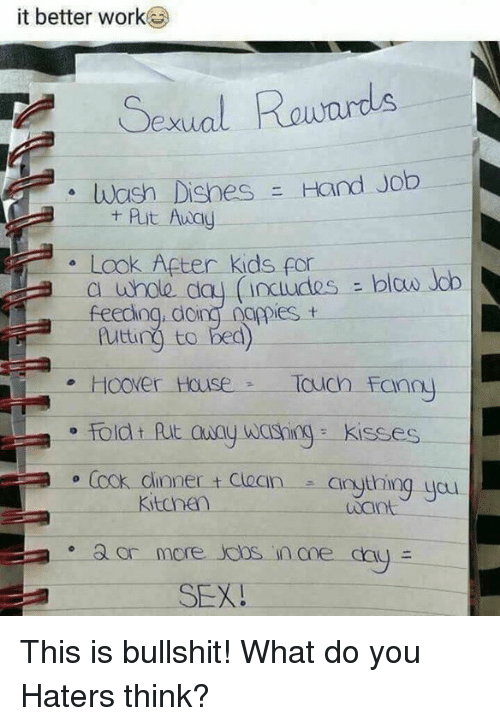 it better work😂
Sexual Rewards
• Wash Dishes = Hand Job
+ Put Away
• Look After kids for
a whole day (includes = blow Job
feeding, doing nappies +
Putting to bed)
• Hoover House = Touch Fanny
• Fold + Put away washing = kisses
• Cook dinner + Clean = anything you
Kitchen want
• 2 or more Jobs in one day =
SEX!
This is bullshit! What do you
Haters think?